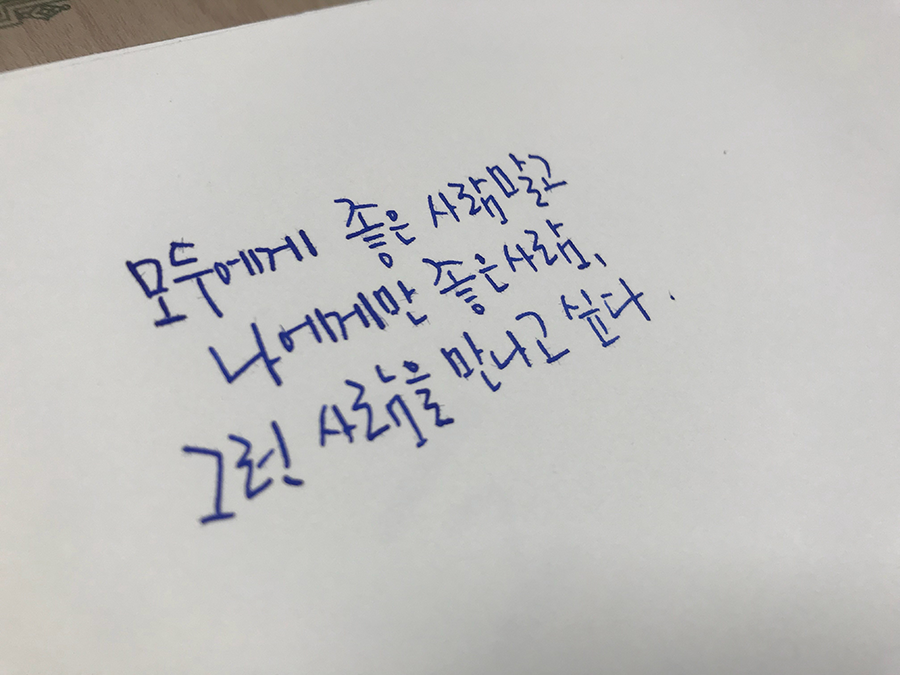 모두에게 좋은 사람말고
나에게만 좋은사람,
그런 사람을 만나고 싶다.